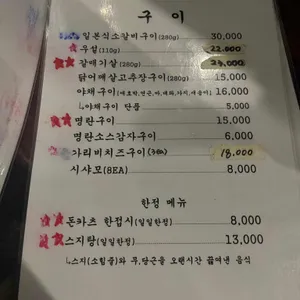 구 이
일본식소갈비구이(280g) 30,000
우설(110g) 22,000
갈매기살(280g) 24,000
닭어깨살고추장구이(280g) 15,000
야채구이(애호박,연근,마,대파,가지,새송이) 16,000
↳야채구이 단품 5,000
명란구이 15,000
명란소스감자구이 6,000
가리비치즈구이 18,000
시샤모(8EA) 8,000
한정 메뉴
돈카츠 한접시(일일한정) 8,000
스지탕(일일한정) 13,000
↳스지(소힘줄)와 무,당근을 오랜시간 끓여낸 음식